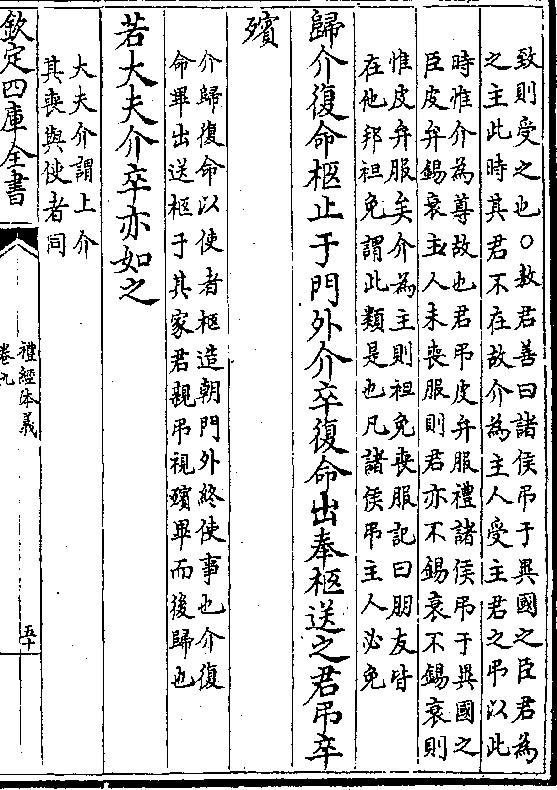 致則受之也○敖君善曰諸侯弔于異國之臣君為
之主此時其君不在故介為主人受主君之弔以此
時惟介為尊故也君弔皮弁服禮諸侯弔于異國之
臣皮弁錫衰主人未喪服則君亦不錫衰不錫衰則
惟皮弁服矣介為主則袒免喪服記曰朋友皆
在他邦袒免謂此類是也凡諸侯弔主人必免
歸介復命柩止于門外介卒復命出奉柩送之君弔卒
殯
介歸復命以使者柩造朝門外終使事也介復
命畢出送柩于其家君親弔視殯畢而後歸也
若大夫介卒亦如之
大夫介謂上介
其喪與使者同
欽定四庫全書
禮經本義
卷九
五十